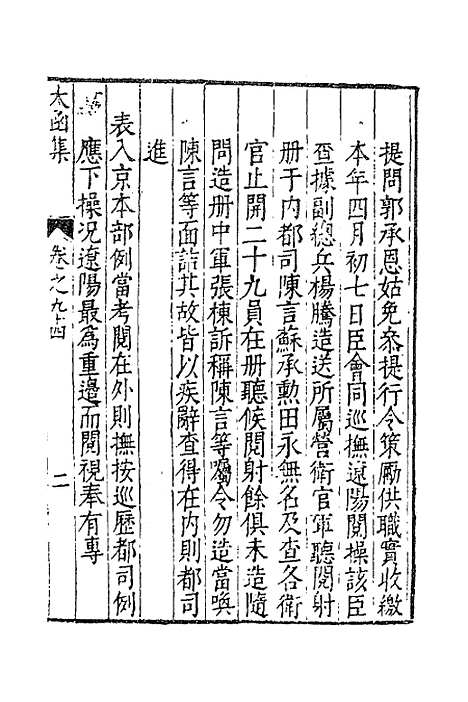 提問郭承恩姑免叅提行令策勵供職實收繳
本年四月初七日臣會同巡撫遼陽閱操該臣
查據副總兵楊騰造送所屬營衛官軍聽閱射
册于内都司陳言蘇承勲田永無名及查各衛
官止開二十九員在册聽候閱射餘俱未造隨
問造册中軍張棟訴稱陳言等囑令勿造當喚
陳言等面詰其故皆以疾辭查得在内則都司
進
表入京本部例當考閱在外則撫按巡歷都司例
應下操况遼陽最為重邊而閱視奉有專
太函集
卷之九十四
二